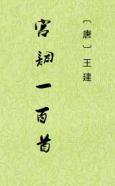 〔唐〕王建
宫词一百首